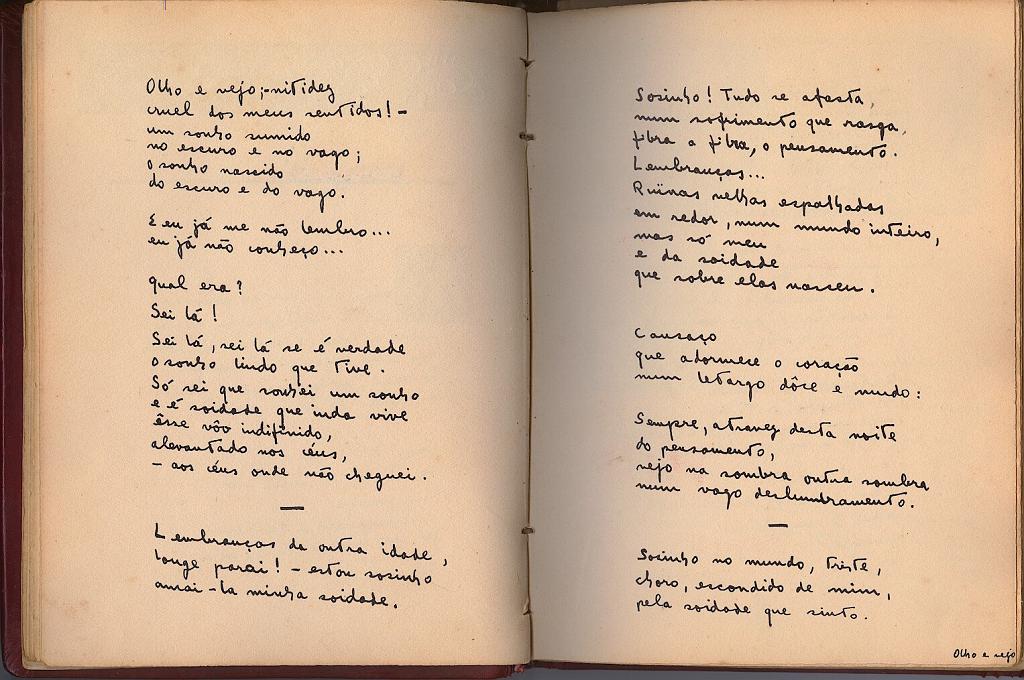 Olho e vejo;-nitidez
cruel dos meus sentidos! -
um sonho sumido
no escuro e no vago;
o sonho nascido
do escuro e do vago.
E eu já me não lembro...
eu já não conheço...
qual era?
Sei lá!
Sei lá, sei lá se é verdade
o sonho lindo que tive.
Só sei que sonhei um sonho
e é soidade que inda vive
êsse vôo indifinido,
alevantado nos céus,
- aos céus onde não cheguei.
—
Lembranças da outra idade,
longe parai! - estou sosinho
amai-la minha soidade.
Sosinho! Tudo se afasta,
num sofrimento que rasga,
fibra a fibra, o pensamento.
Lembranças...
Ruínas velhas espalhadas
em redor, num mundo inteiro,
mas só meu
e da soidade
que sobre elas nasceu.
Cansaço
que adormece o coração
num letargo dôce e mudo:
Sempre, atravez desta noite
do pensamento,
vejo na sombra outra sombra
num vago deslumbramento.
—
Sosinho no mundo, triste,
choro, escondido de mim,
pela soidade que sinto.
Olho e vejo